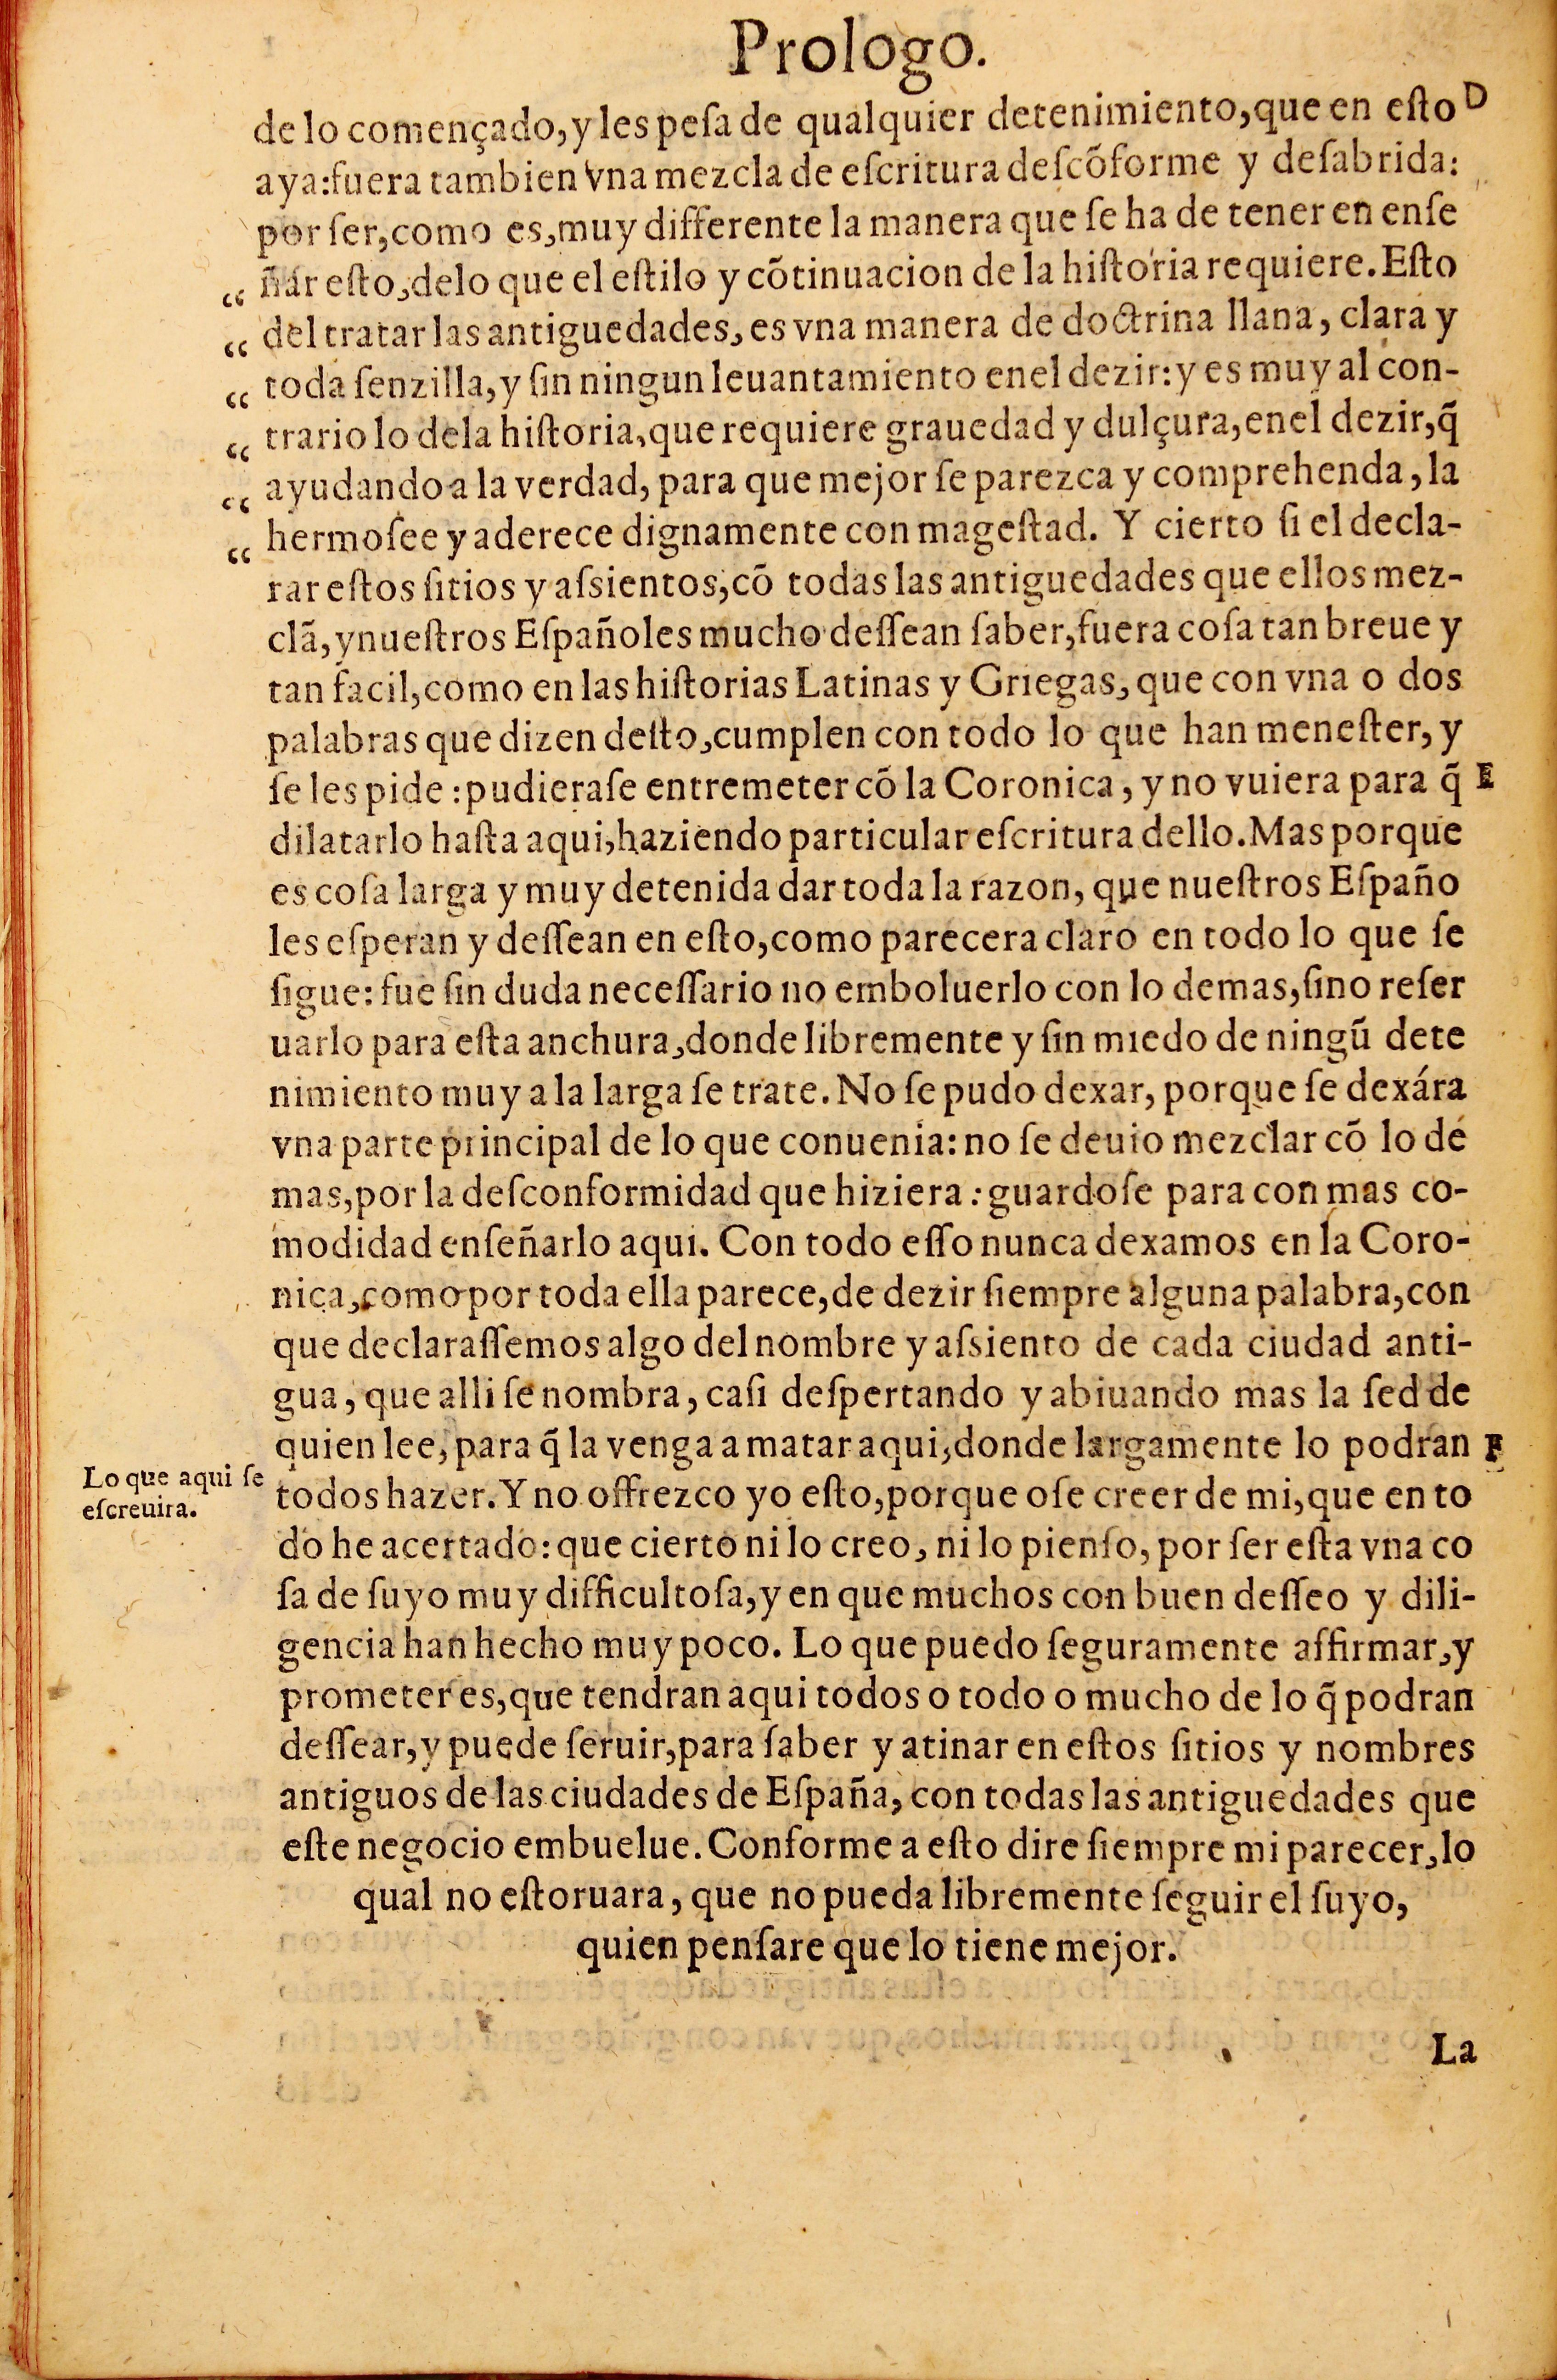 Prologo.
de lo començado, y les pesa de qualquier detenimiento, que en esto D
aya: fuera tambien vna mezcla de escritura descõforme y desabrida:
por ser, como es, muy differente la manera que se ha de tener en ense
“ ñar esto, delo que el estilo y cõtinuacion de la historia requiere. Esto
“ del tratar las antiguedades, es vna manera de doctrina llana, clara y
“ toda senzilla, y sin ningun leuantamiento enel dezir: y es muy al con-
“ trario lo dela historia, que requiere grauedad y dulçura, enel dezir, q̃
“ ayudando a la verdad, para que mejor se parezca y comprehenda, la
“ hermosee y aderece dignamente con magestad. Y cierto si el decla-
rar estos sitios y assientos, cõ todas las antiguedades que ellos mez-
clã, y nuestros Españoles mucho dessean saber, fuera cosa tan breue y
tan facil, como en las historias Latinas y Griegas, que con vna o dos
palabras que dizen desto, cumplen con todo lo que han menester, y
se les pide: pudierase entremeter cõ la Coronica, y no vuiera para q̃ E
dilatarlo hasta aqui, haziendo particular escritura dello. Mas porque
es cosa larga y muy detenida dar toda la razon, que nuestros Españo
les esperan y dessean en esto, como parecera claro en todo lo que se
sigue: fue sin duda necessario no emboluerlo con lo demas, sino reser
uarlo para esta anchura, donde libremente y sin miedo de ningũ dete
nimiento muy a la larga se trate. No se pudo dexar, porque se dexára
vna parte principal de lo que conuenia: no se deuio mezclar cõ lo de
mas, por la desconformidad que hiziera: guardose para con mas co-
modidad enseñarlo aqui. Con todo esso nunca dexamos en la Coro-
nica, como por toda ella parece, de dezir siempre alguna palabra, con
que declarassemos algo del nombre y assiento de cada ciudad anti-
gua, que alli se nombra, casi despertando y abiuando mas la sed de
quien lee, para q̃ la venga a matar aqui, donde largamente lo podran F
Lo que aqui se
escreuira.
todos hazer. Y no offrezco yo esto, porque ose creer de mi, que en to
do he acertado: que cierto ni lo creo, ni lo pienso, por ser esta vna co
sa de suyo muy difficultosa, y en que muchos con buen desseo y dili-
gencia han hecho muy poco. Lo que puedo seguramente affirmar, y
prometer es, que tendran aqui todos o todo o mucho de lo q̃ podran
dessear, y puede seruir, para saber y atinar en estos sitios y nombres
antiguos de las ciudades de España, con todas las antiguedades que
este negocio embuelue. Conforme a esto dire siempre mi parecer, lo
qual no estoruara, que no pueda libremente seguir el suyo,
quien pensare que lo tiene mejor.
La